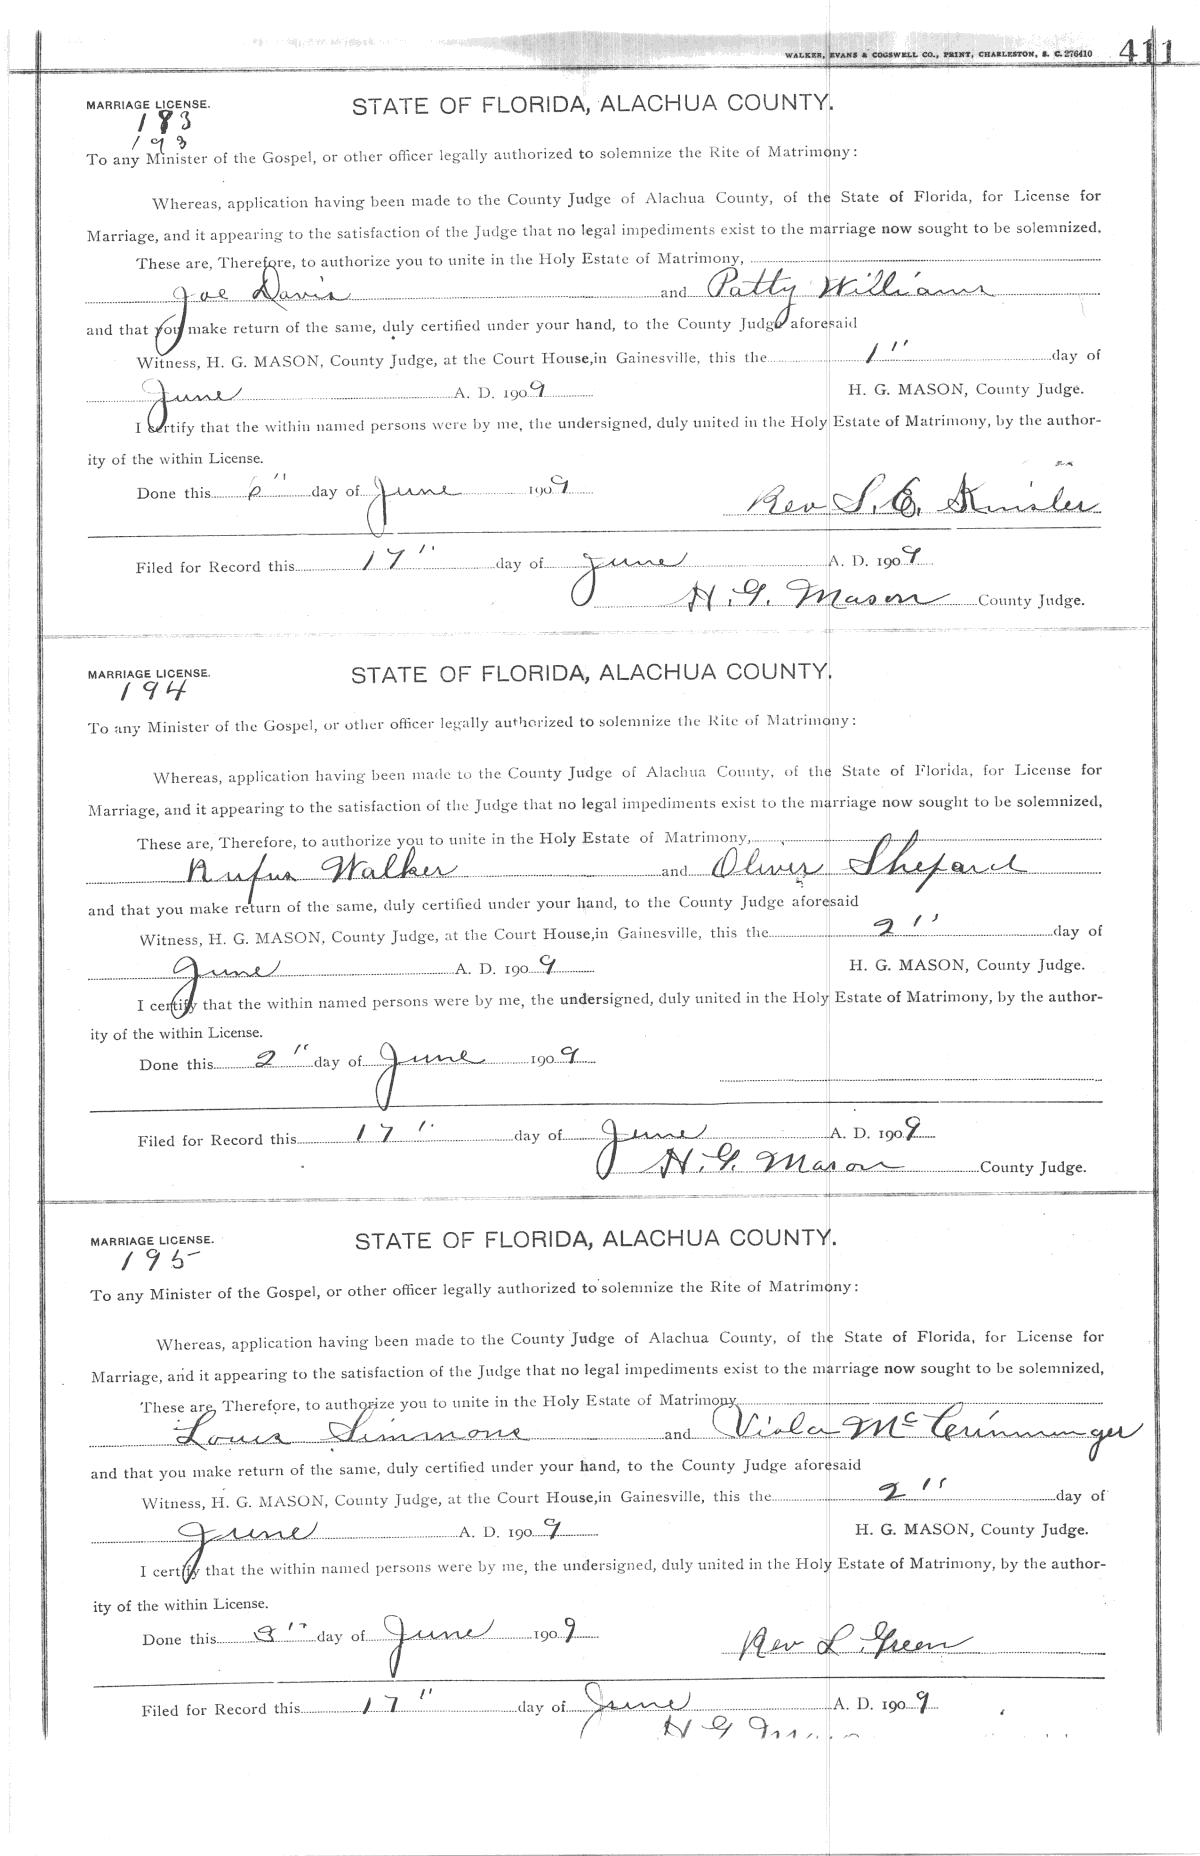 WALKER, EVANS & COGSWELL CO., PRINT, CHARLESTON, S. C. 276410 411
MARRIAGE LICENSE. STATE OF FLORIDA, ALACHUA COUNTY.
183
193
To any Minister of the Gospel, or other officer legally authorized to solemnize the Rite of Matrimony:
Whereas, application having been made to the County Judge of Alachua County, of the State of Florida, for License for
Marriage, and it appearing to the satisfaction of the Judge that no legal impediments exist to the marriage now sought to be solemnized,
These are, Therefore, to authorize you to unite in the Holy Estate of Matrimony,
Joe Davis and Patty Williams
and that you make return of the same, duly certified under your hand, to the County Judge aforesaid
Witness, H. G. MASON, County Judge, at the Court House, in Gainesville, this the 1" day of
June A. D. 1909 H. G. MASON, County Judge.
I certify that the within named persons were by me, the undersigned, duly united in the Holy Estate of Matrimony, by the author-
ity of the within License.
Done this 6" day of June 1909 Rev S. E. Kinsler
Filed for Record this 17" day of June A. D. 1909
H. G. Mason County Judge.
MARRIAGE LICENSE. STATE OF FLORIDA, ALACHUA COUNTY.
194
To any Minister of the Gospel, or other officer legally authorized to solemnize the Rite of Matrimony:
Whereas, application having been made to the County Judge of Alachua County, of the State of Florida, for License for
Marriage, and it appearing to the satisfaction of the Judge that no legal impediments exist to the marriage now sought to be solemnized,
These are, Therefore, to authorize you to unite in the Holy Estate of Matrimony,
Rufus Walker and Oliver Shepard
and that you make return of the same, duly certified under your hand, to the County Judge aforesaid
Witness, H. G. MASON, County Judge, at the Court House, in Gainesville, this the 2" day of
June A. D. 1909 H. G. MASON, County Judge.
I certify that the within named persons were by me, the undersigned, duly united in the Holy Estate of Matrimony, by the author-
ity of the within License.
Done this 2" day of June 1909
Filed for Record this 17" day of June A. D. 1909
H. G. Mason County Judge.
MARRIAGE LICENSE. STATE OF FLORIDA, ALACHUA COUNTY.
195
To any Minister of the Gospel, or other officer legally authorized to solemnize the Rite of Matrimony:
Whereas, application having been made to the County Judge of Alachua County, of the State of Florida, for License for
Marriage, and it appearing to the satisfaction of the Judge that no legal impediments exist to the marriage now sought to be solemnized,
These are, Therefore, to authorize you to unite in the Holy Estate of Matrimony
Louis Simmons and Viola McCrimmnger
and that you make return of the same, duly certified under your hand, to the County Judge aforesaid
Witness, H. G. MASON, County Judge, at the Court House, in Gainesville, this the 2" day of
June A. D. 1909 H. G. MASON, County Judge.
I certify that the within named persons were by me, the undersigned, duly united in the Holy Estate of Matrimony, by the author-
ity of the within License.
Done this 3" day of June 1909 Rev L Green
Filed for Record this 17" day of June A. D. 1909
H G Mason